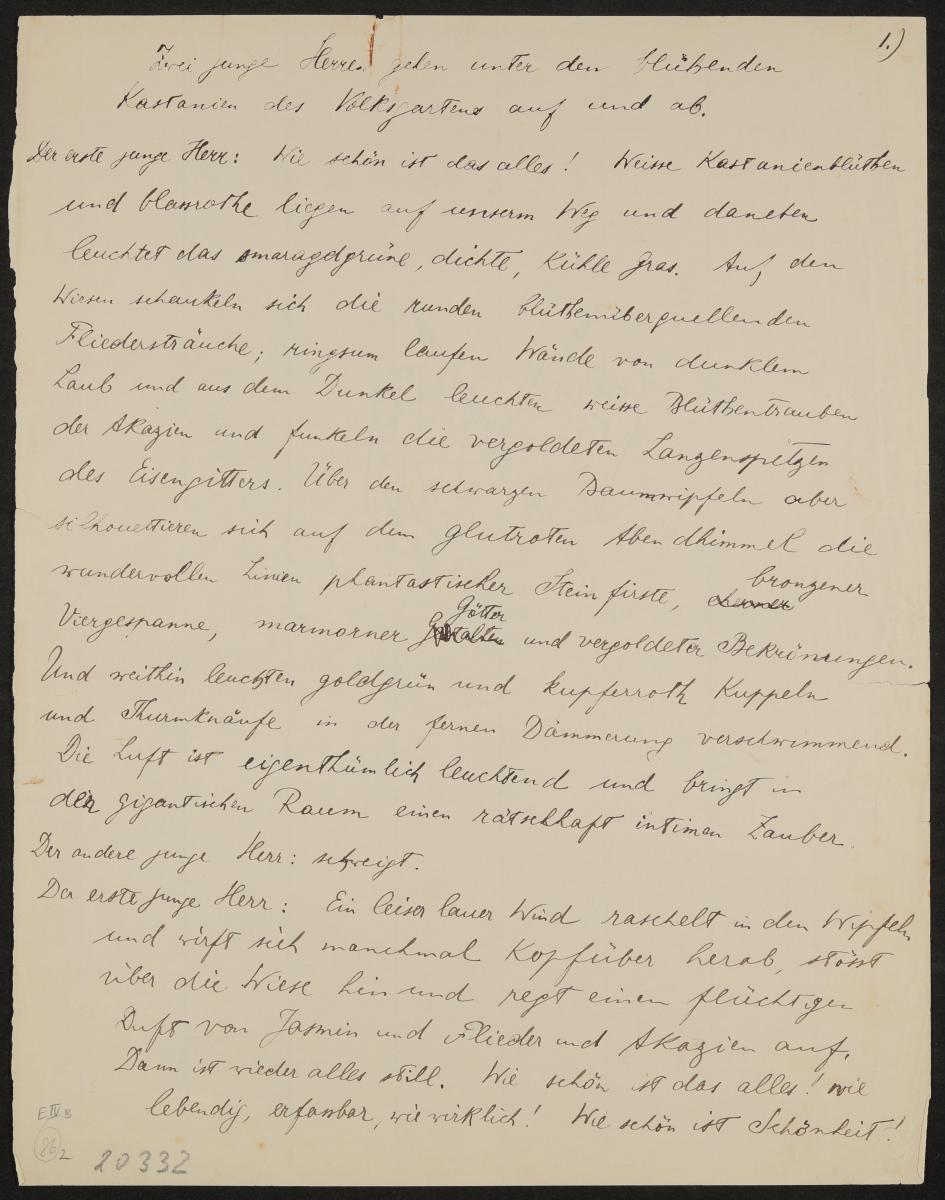 1.)
Zwei junge Herren gehen unter den blühenden
Kastanien des Volksgartens auf und ab.
Der erste junge Herr: Wie schön ist das alles! Weisse Kastanienblüthen
und blassrothe liegen auf unserm Weg und daneben
leuchtet das smaragdgrüne, dichte, kühle Gras. Auf den
Wiesen schaukeln sich die runden blüthenüberquellenden
Fliedersträuche; ringsum laufen Wände von dunklem
Laub und aus dem Dunkel leuchten weisse Blüthentrauben
der Akazien und funkeln die vergoldeten Lanzenspitzen
des Eisengitters. Über den schwarzen Baumwipfeln aber
silhouettieren sich auf dem glutroten Abendhimmel die
wundervollen Linien phantastischer Steinfirste, bronzener
Viergespanne, marmorner Götter und vergoldeter Bekrönungen.
Und weithin leuchten goldgrün und kupferroth Kuppeln
und Thurmknäufe in der fernen Dämmerung verschwimmend.
Die Luft ist eigenthümlich leuchtend und bringt in
den gigantischen Raum einen rätselhaft intimen Zauber.
Der andere junge Herr: schweigt.
Der erste junge Herr: Ein leiser lauer Wind raschelt in den Wipfeln
und wirft sich manchmal kopfüber herab, stösst
über die Wiese hin und regt einen flüchtigen
Duft von Jasmin und Flieder und Akazien auf.
Dann ist wieder alles still. Wie schön ist das alles! wie
lebendig, erfassbar, wie wirklich! Wie schön ist Schönheit!
E IV B
86 2
20332